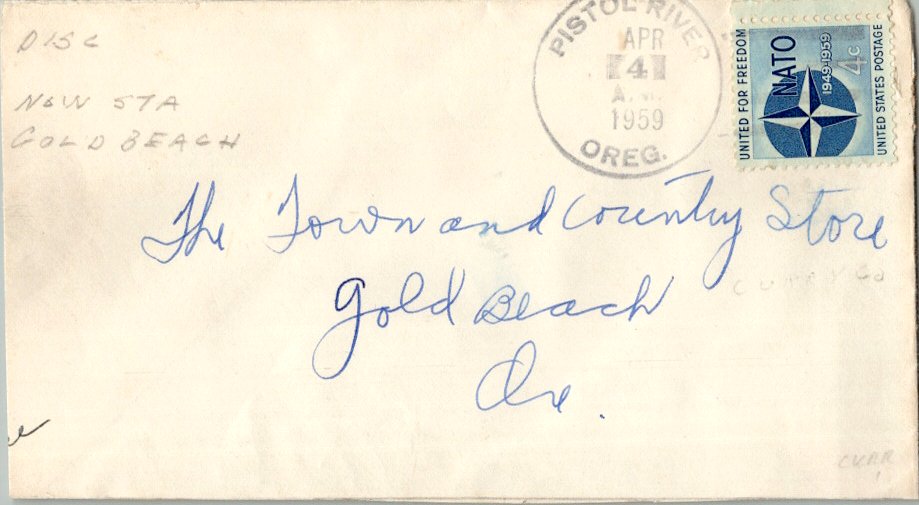 DISC
NOW STA
GOLD BEACH
PISTOL RIVER
APR
4
A.M.
1959
OREG.
UNITED FOR FREEDOM
NATO
1949-1959
4c
UNITED STATES POSTAGE
The Town and Country Store
Gold Beach
Ore.
CURRY CO